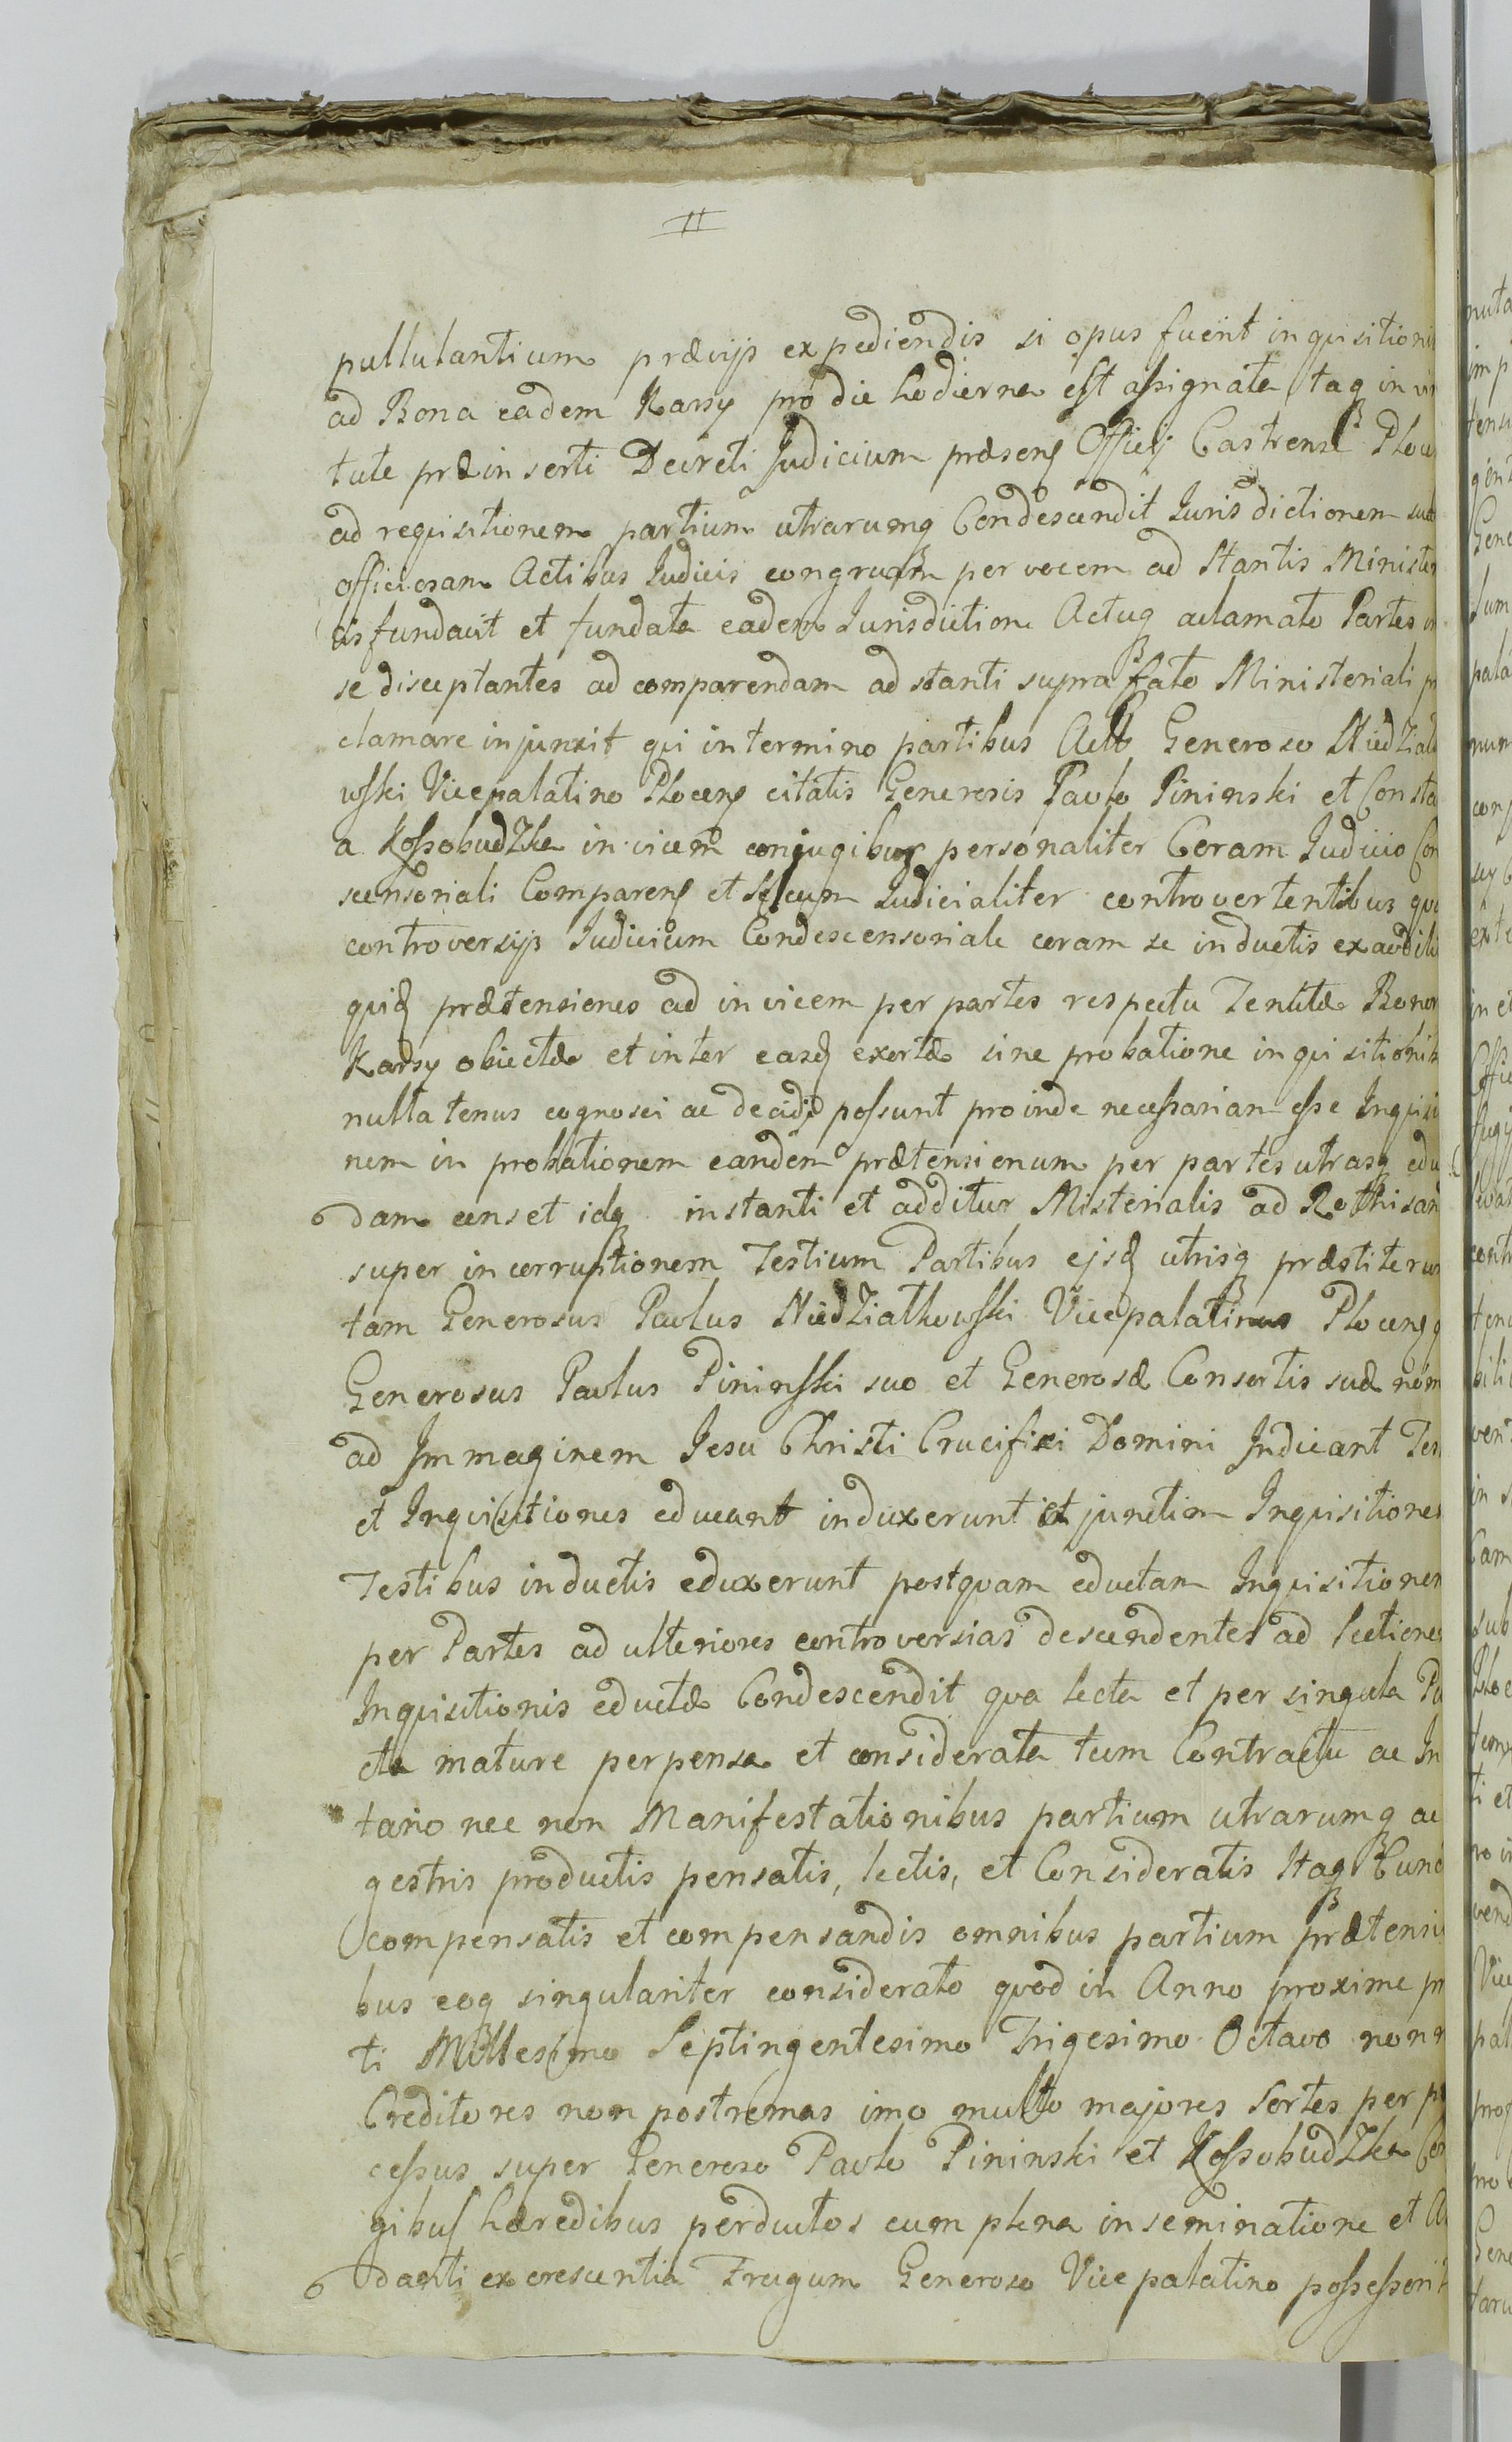 II
pullulantium præviis expediendis si opus fuerit inquisitioni
ad Bona eadem Karsy pro die hodierna est assignata Itaq in vir
tute præinserti Decreti Judicium præsens Officij Castrens Ploce
ad requisitionem partium utrarumq Condescendit Jurisdictionem sua
officiosam Actibus Judicis congruam per vocem ad Stantis Minister
is fundavit et fundata eadem Jurisdictione Actuq aclamato Partes in
se disceptantes ad comparendam ad stanti supra fato Ministeriali pr
clamare injunxit qui in termino partibus Act Generoso Niedzialk
owski Vicepalatino Plocens citatis Generosis Pavlo Pininski et Consta
a Kossobudzka invicem conjugibus personaliter Coram Judicio Con
scensoriali Comparens et Secum Judicialiter controvertentibus qui
controversijs Judicium Condescensoriale coram se inductis exaudit
quia prætensiones ad invicem per partes respectu Tenutæ Bonor
Karsy obiectæ et inter easq exortæ sine probatione inquisitionis
nulla tenus cognosci ac decidi possunt proinde necessariam esse Inquisi
nem in probationem eandem prætensionum per partes utrasq edu
dam censet idq instanti et additur Misterialis ad Rothisan
super incorruptionem Testium Partibus ejsq utrisq præstiterun
tam Generosus Pavlus Niedzialkowski Vicepalatinus Plocens q
Generosus Pavlus Pininski suo et Generosæ Consortis suæ nom
ad Immaginem Jesu Christi Crucifixi Domini Indicant Tes
et Inquisitiones educant induxerunt et junctim Inquisitiones
Testibus inductis eduxerunt postquam eductam Inquisitionem
per Partes ad ulteriores controversias descendentes ad lectiones
Inquisitionis eductæ Condescendit qva lecta et per singula Pu
cta mature perpensa et considerata tum Contractu ac In
tario nec non Manifestationibus partium utrarumq ac
gestris productis pensatis, lectis, et Consideratis Itaq Cunc
compensatis et compensandis omnibus partium prætensio
bus eoq singulariter considerato qvod in Anno proxime pr
ti Millesimo Septingentesimo Trigesimo Octavo non n
Creditores non postremas imo multo majores Sortes per pr
cessus super Generoso Pavlo Pininski et Kossobudzka Con
gibus hæredibus perductos cum plena inseminatione et
danti excrescentia Frugum Generoso Vicepalatino possessori